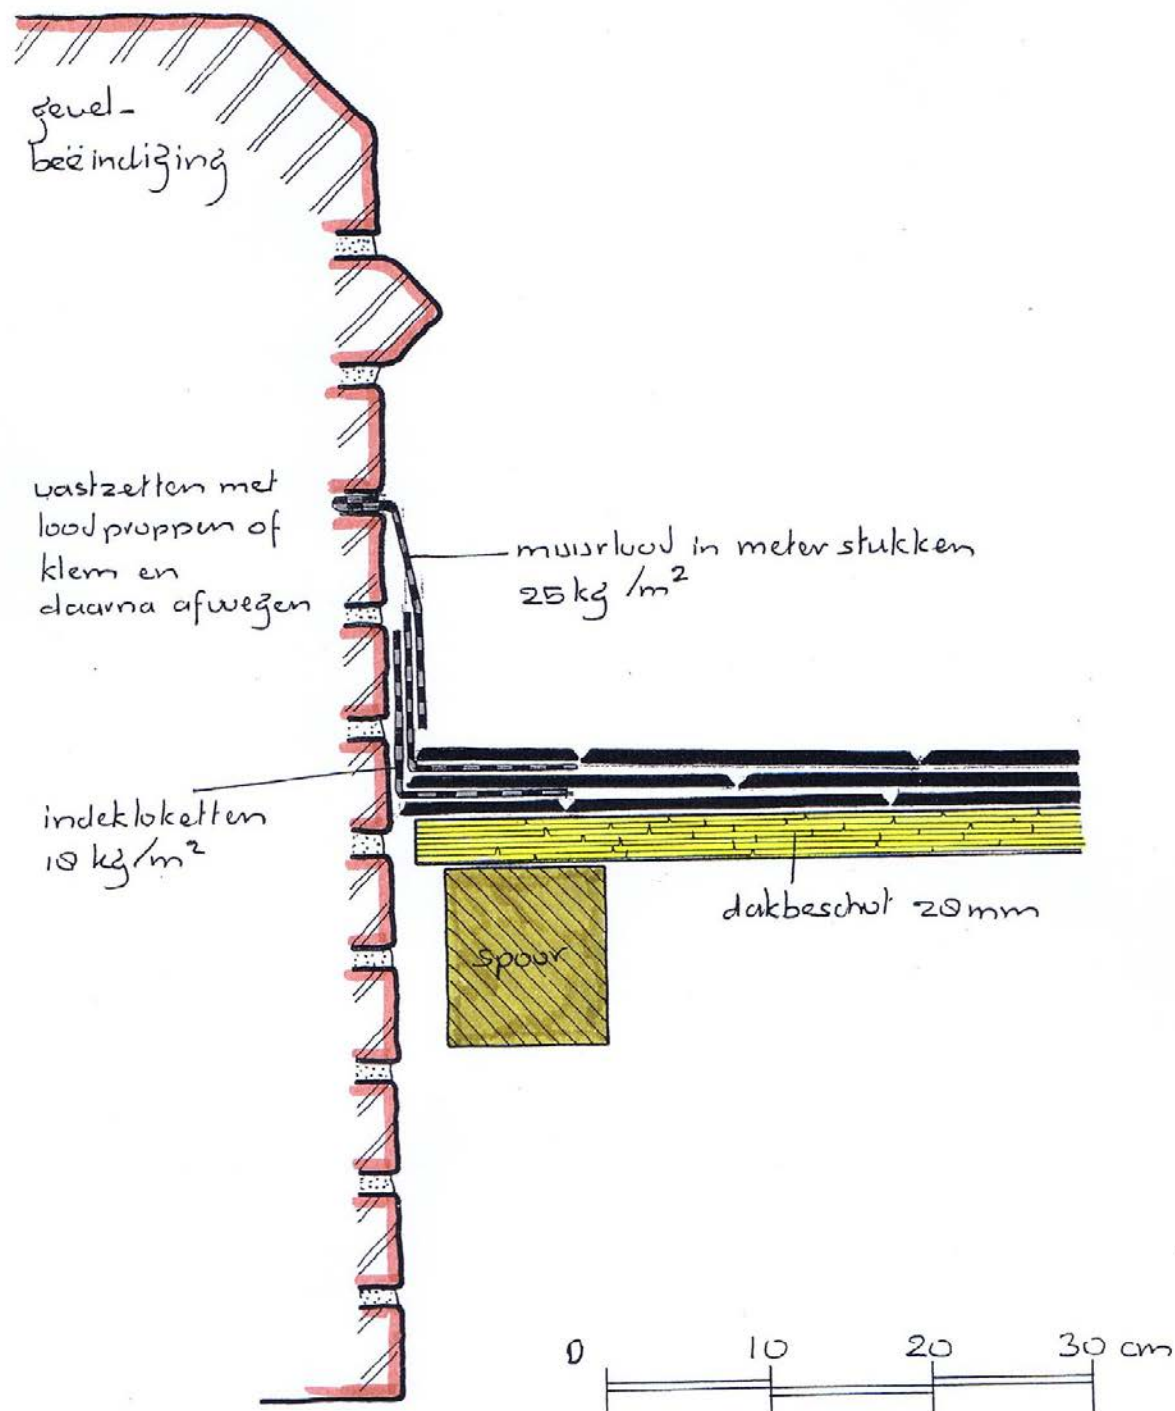 gevel-
beëindiging
vastzetten met
loodproppen of
klem en
daarna afvoegen
muurlood in meterstukken
25 kg/m²
indekloketten
18 kg/m²
dakbeschot 28mm
spoor
0 10 20 30 cm